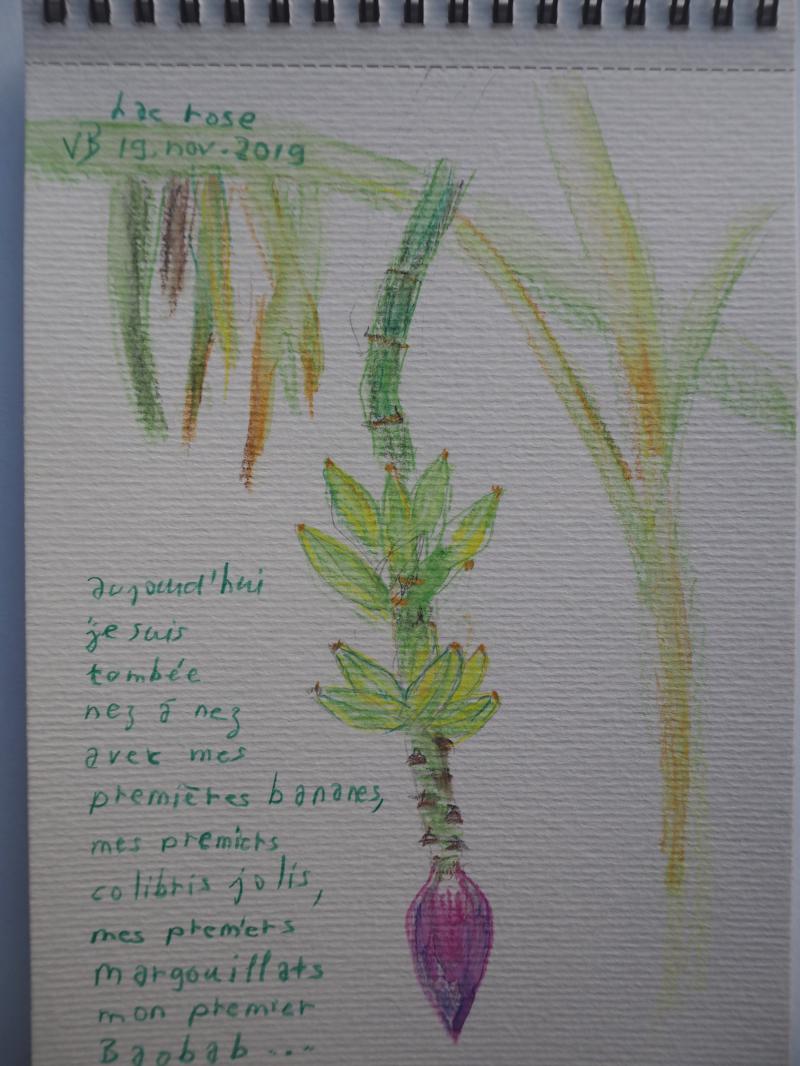 Lac rose
VB 19. nov. 2019
aujourd'hui
je suis
tombée
nez à nez
avec mes
premières bananes,
mes premiers
colibris jolis,
mes premiers
margouillats
mon premier
Baobab ...